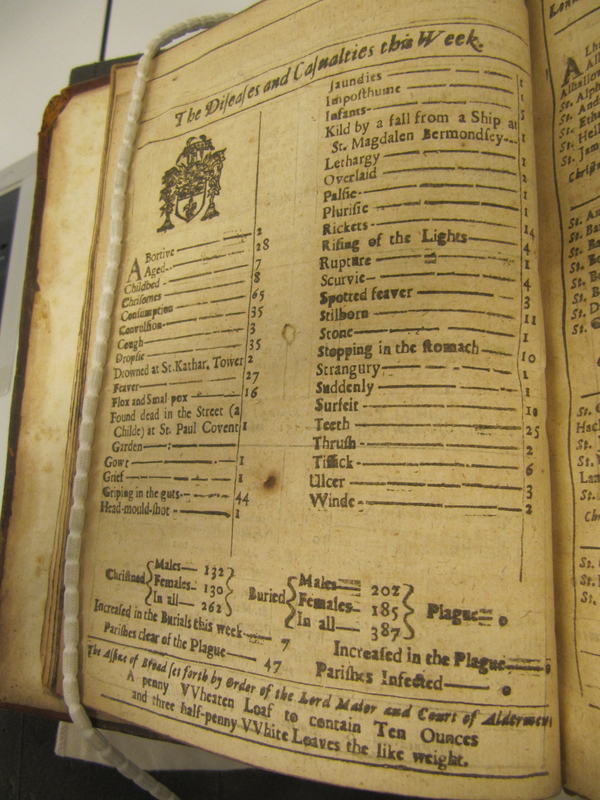 The Diseases and Casualties this Week.
Abortive — 2
Aged — 28
Childbed — 7
Chrisomes — 8
Consumption — 65
Convulsion — 35
Cough — 3
Dropsie — 35
Drowned at St. Kathar. Tower 2
Feaver — 27
Flox and Smal pox — 16
Found dead in the Street (a
Childe) at St. Paul Covent 1
Garden —
Gowt — 1
Grief — 1
Griping in the guts — 44
Head-mould-shot — 1
Jaundies — 1
Imposthume — 1
Infants — 5
Kild by a fall from a Ship at
St. Magdalen Bermondsey
Lethargy — 1
Overlaid — 2
Palsie — 1
Plurisie — 1
Rickets — 14
Rising of the Lights — 4
Rupture — 1
Scurvie — 4
Spotted feaver — 3
Stilborn — 11
Stone — 1
Stopping in the stomach — 10
Strangury — 1
Suddenly — 1
Surfeit — 10
Teeth — 25
Thrush — 2
Tissick — 6
Ulcer — 3
Winde — 2
Christned { Males — 132 Females — 130 In all — 262 }
Buried { Males — 202 Females — 185 In all — 387 } Plague — 0
Increased in the Burials this week — 7
Increased in the Plague — 0
Parishes clear of the Plague — 47
Parishes Infected — 0
The Assize of Bread set forth by Order of the Lord Maior and Court of Aldermen
A penny VVheaten Loaf to contain Ten Ounces
and three half-penny VVhite Loaves the like weight.